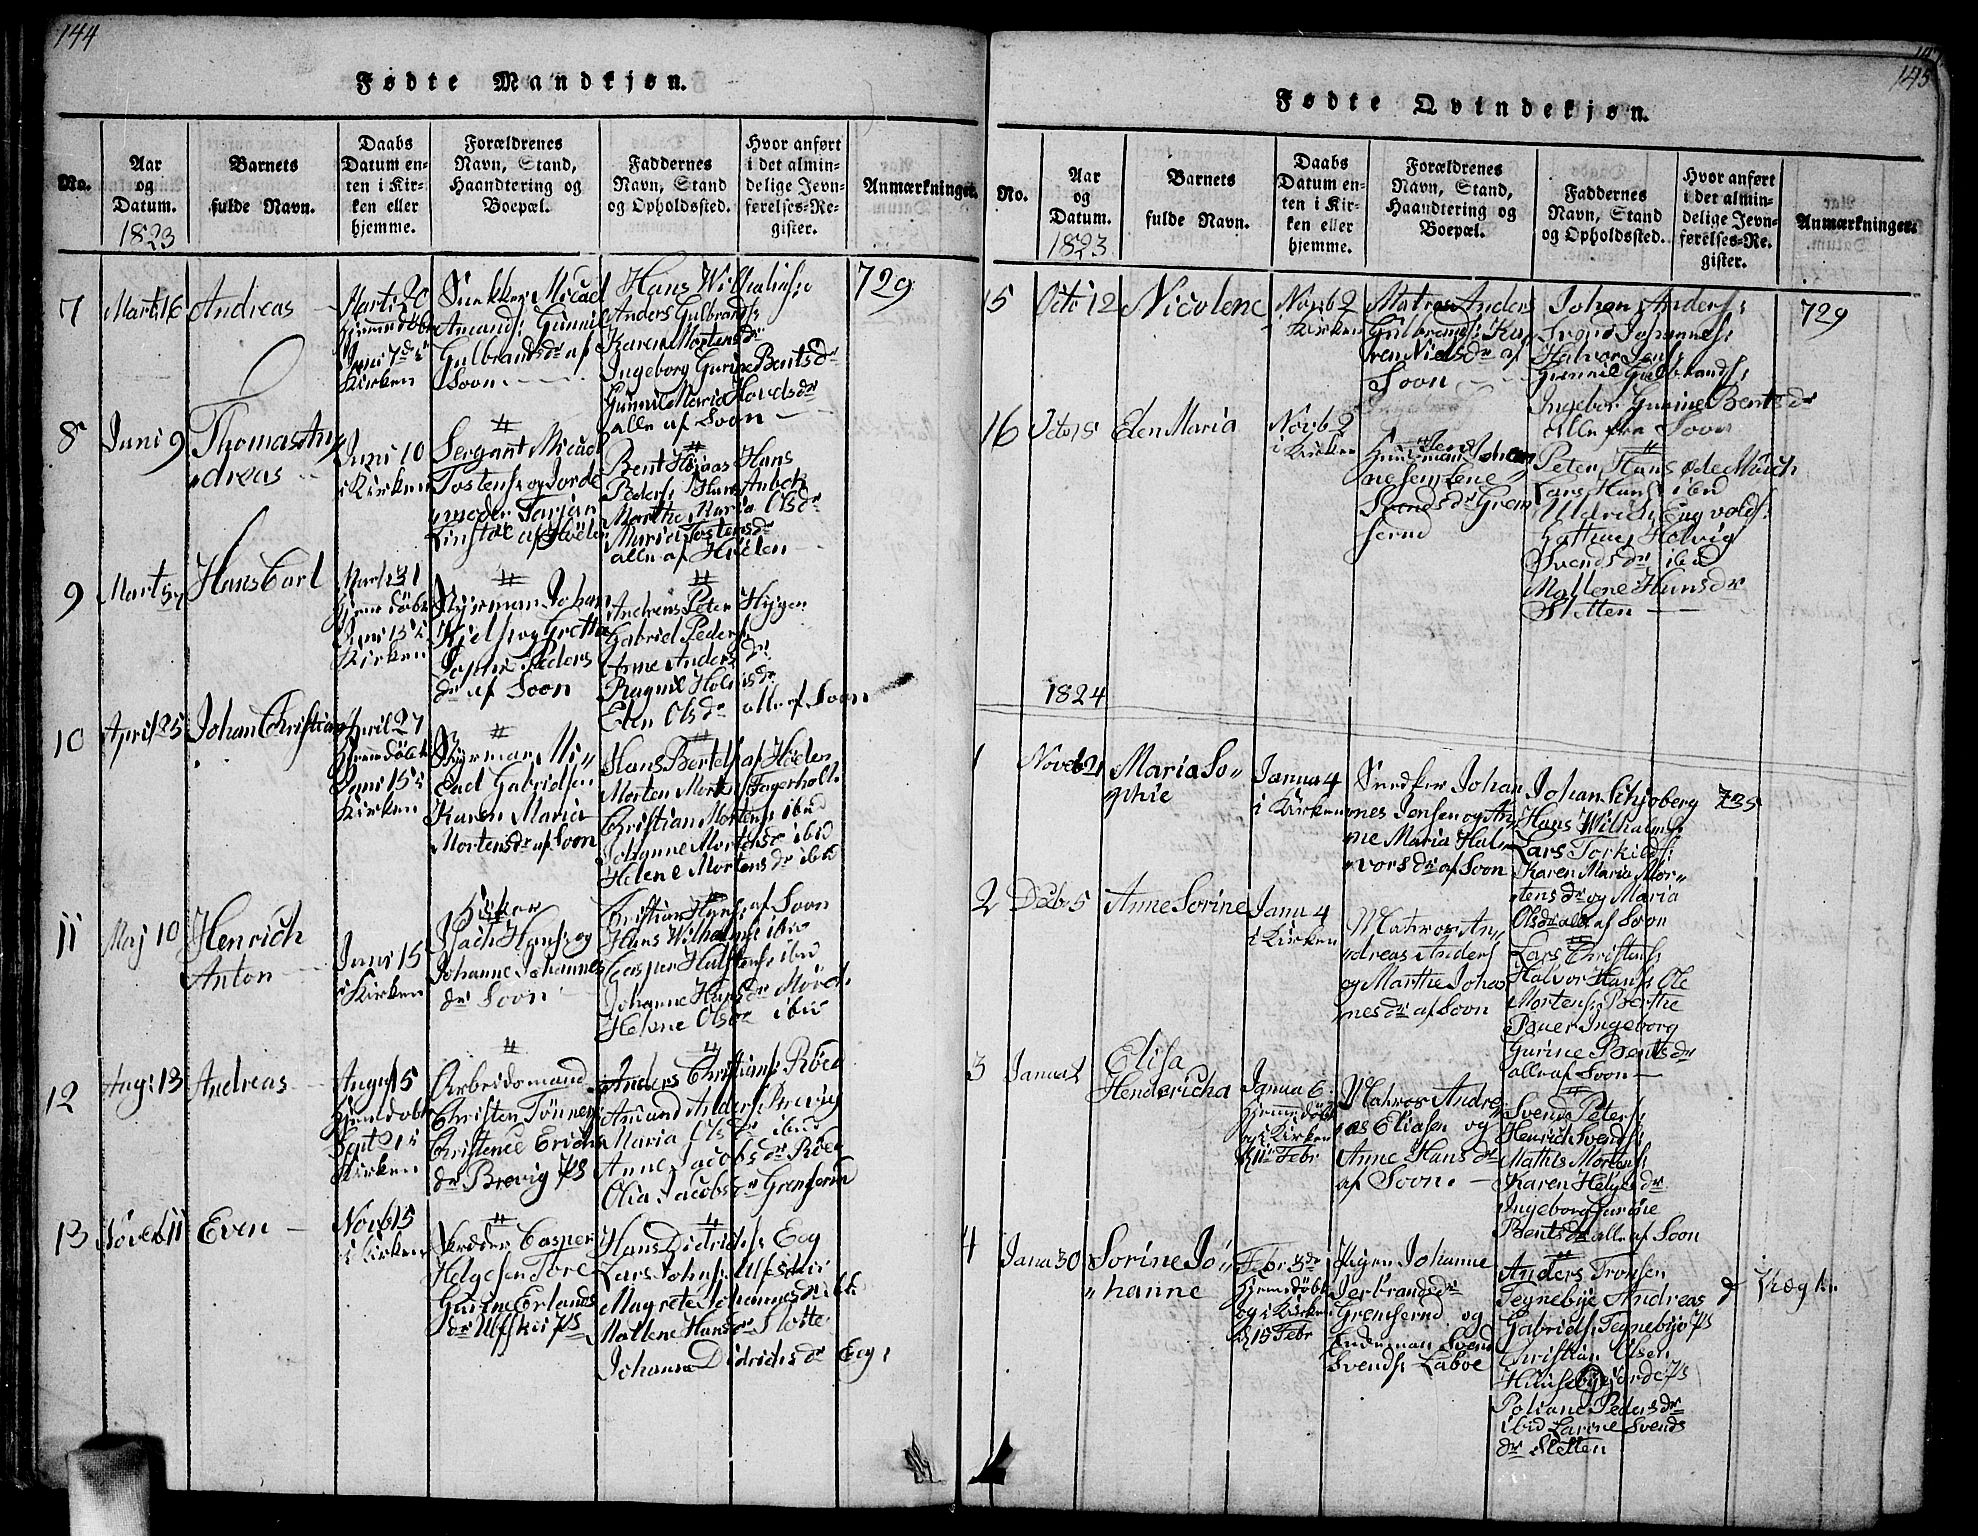 144
Fødte Mandkjøn.
No.
Aar
og
Datum.
1823
Barnets
fulde Navn.
Daabs
Datum en-
ten i Kir-
ken eller
hjemme.
Forældrenes
Navn, Stand,
Haandtering og
Boepæl.
Faddernes
Navn, Stand
og Opholdssted.
Hvor anført
i det almin-
delige Jevn-
førelses-Re-
gister.
Anmærkninger.
7
Marti 16
Andreas
Marti 20
Hjemdöbt
Juni 7de i
Kirken
Snekker Micael
Amands: Gunnil
Gulbrandsdr af
Soon.
Hans Wilhelms:
Anders Gulbrands:
Karen Mortensdr
Ingeborg Gurine Bentsdr
Gunnil Maria Hovelsdr
alle af Soon
729
8
Juni 9
Thomas An
dreas
Juni 10
i Kirken
Sergant Micael
Tostens: og Jorde
moder Tarjan
af Hölen
Bent Hans
Peders: Hans
Marthe Maria Olsdr
Maria Tostensdr
alle af Hölen
9
Hans Carl
Marti 31
Hjem döbt
Juni 15 i
Kirken
Styrman Johan
Kjels: og Grethe
Sophie Peders
dr af Soon
Andreas Peter Hygen
Gabriel Peders:
Anne Andersdr
Ragnil Holmsdr
Elen Olsdr alle af Soon
10
April 25
Johan Christian
April 27
Hjemdöbt
Juni 15 i
Kirken
Styrman Mi
cael Gabrielsen
Karen Maria
Mortensdr af Soon
Hans Bertels: af Hölen
Morten Mort: Fagerholt
Christian Mortens: ibid
Johanne Mortensdr ibid
Helene Mortensdr ibid
11
Maj 10
Henrich
Anton
Juni 15
i Kirken
Fisker
Isach Hans: og
Johanne Johannes
dr Soon
Christian Hans: af Soon
Hans Wilhelms: ibid
Casper Halstens: ibid
Johanne Hansdr
Helene Olsdr ibid
12
Aug: 13
Andreas
Aug 15
Hjemdöbt
Sept 21 i
Kirken
Arbeidsmand
Christen Tönnes:
Christence Erichs
dr Brevig Ps
Anders Christians: Röed
Amund Anders: Brevig
Maria Olsdr ibid
Anne Jacobsdr Röed
Olia Jacobsdr Grenserud
13
Novemb 11
Even
Novb 15
i Kirken
Skrædder Casper
Helgesen Tore
Gurine Erlands
dr Ulfskii Ps
Hans Didrichs: Eeg
Lars Johns: Ulfskii
Magrete Johannesdr ibd
Mallene Hansdr Slotte
Johanne Didrichsdr Eeg:
145
Fødte Qvindekjøn.
No.
Aar
og
Datum.
1823
Barnets
fulde Navn.
Daabs
Datum en-
ten i Kir-
ken eller
hjemme.
Forældrenes
Navn, Stand,
Haandtering og
Boepæl.
Faddernes
Navn, Stand
og Opholdssted.
Hvor anført
i det almin-
delige Jevn-
førelses-Re-
gister.
Anmærkninger.
15
Octo 12
Nicolene
Novb 2
i Kirken
Matros Anders
Gulbrands: Ka
ren Nielsdr af
Soon
Johan Anders:
Johannes:
Halvor Jens:
Gunnil Gulbrands:
Ingebor Gurine Bentsdr
alle fra Soon
729
16
Octo 15
Elen Maria
Novb 2
i Kirken
Huusmand Johan
nesen Lene
Svendsdr Gren
serud
Peter Hans:
Lars Hans: ibid
Uldrich Engvolds:
Helvig
Svendsdr ibid
Mallene Hansdr
Sletten
1824
1
Novb 21
Maria So
phie
Janua 4
i Kirken
Snedker Johan
nes Jensen og An
ne Maria Hal
vorsdr af Soon
Johan Schjoberg
Hans Wilhelms:
Lars Torkilds:
Karen Maria Mor
tensdr og Maria
Olsdr alle af Soon
735
2
Decb 5
Anne Sorine
Janu 4
i Kirken
Matros An
dreas Anders
og Marthe Johan
nesdr af Soon
Lars Christens:
Halvor Hans: Ole
Mortens: Berthe
Bauer Ingeborg
Gurine Bentsdr
alle af Soon
3
Janua 2
Elisa
Hendericha
Janua 6
Hjemdöbt
og i Kirken
d 11te Febr
Matros Andre
as Eliasen og
Anne Hansdr
af Soon.
Svend Peters:
Henrich Svends:
Mathis Mortens:
Karen Helgesdr
Ingeborg Gurine
Bentsdr alle af Soon
4
Janua 30
Sorine Jo
hanne
Febr 3de
Hjemdöbt
og i Kirken
d 15 Febr
Pigen Johanne
Jerbrandsdr
Grenserud og
Enkeman Svend
Svends: Laboe
Anders Tronsen
Tegnebye Andreas
Gabriels: Tegnebye Ps
Christian Olsen
Huusebye jorde Ps
Poliane Pedersdr
ibid Larine Svends
dr Sletten